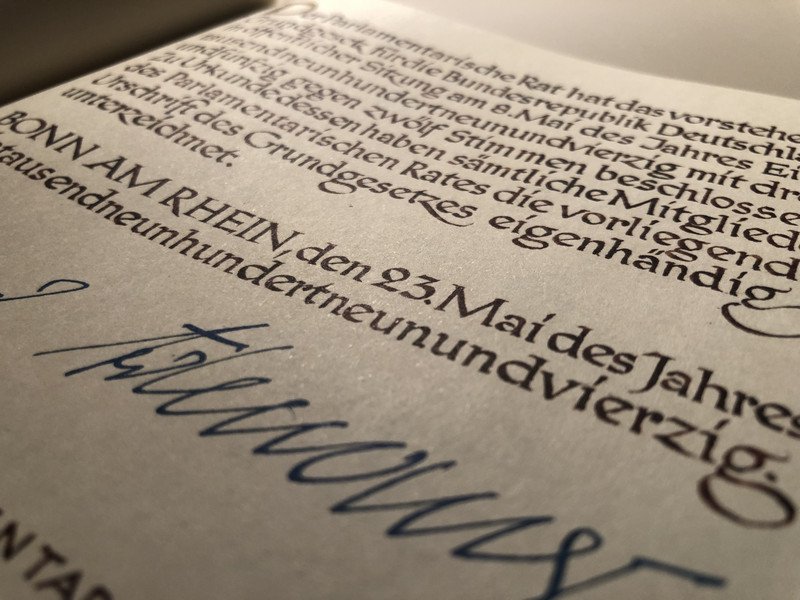 Der Parlamentarische Rat hat das vorstehe
für die Bundesrepublik Deutschla
öffentlicher Sitzung am 8. Mai des Jahres Ei
neunhundertneunundvierzig mit drei
undfünfzig gegen zwölf Stimmen beschlosse
Zu Urkunde dessen haben sämtliche Mitgliede
des Parlamentarischen Rates die vorliegend
Urschrift des Grundgesetzes eigenhändig
unterzeichnet.
BONN AM RHEIN, den 23. Mai des Jahres
tausendneunhundertneunundvierzig.
NTAR